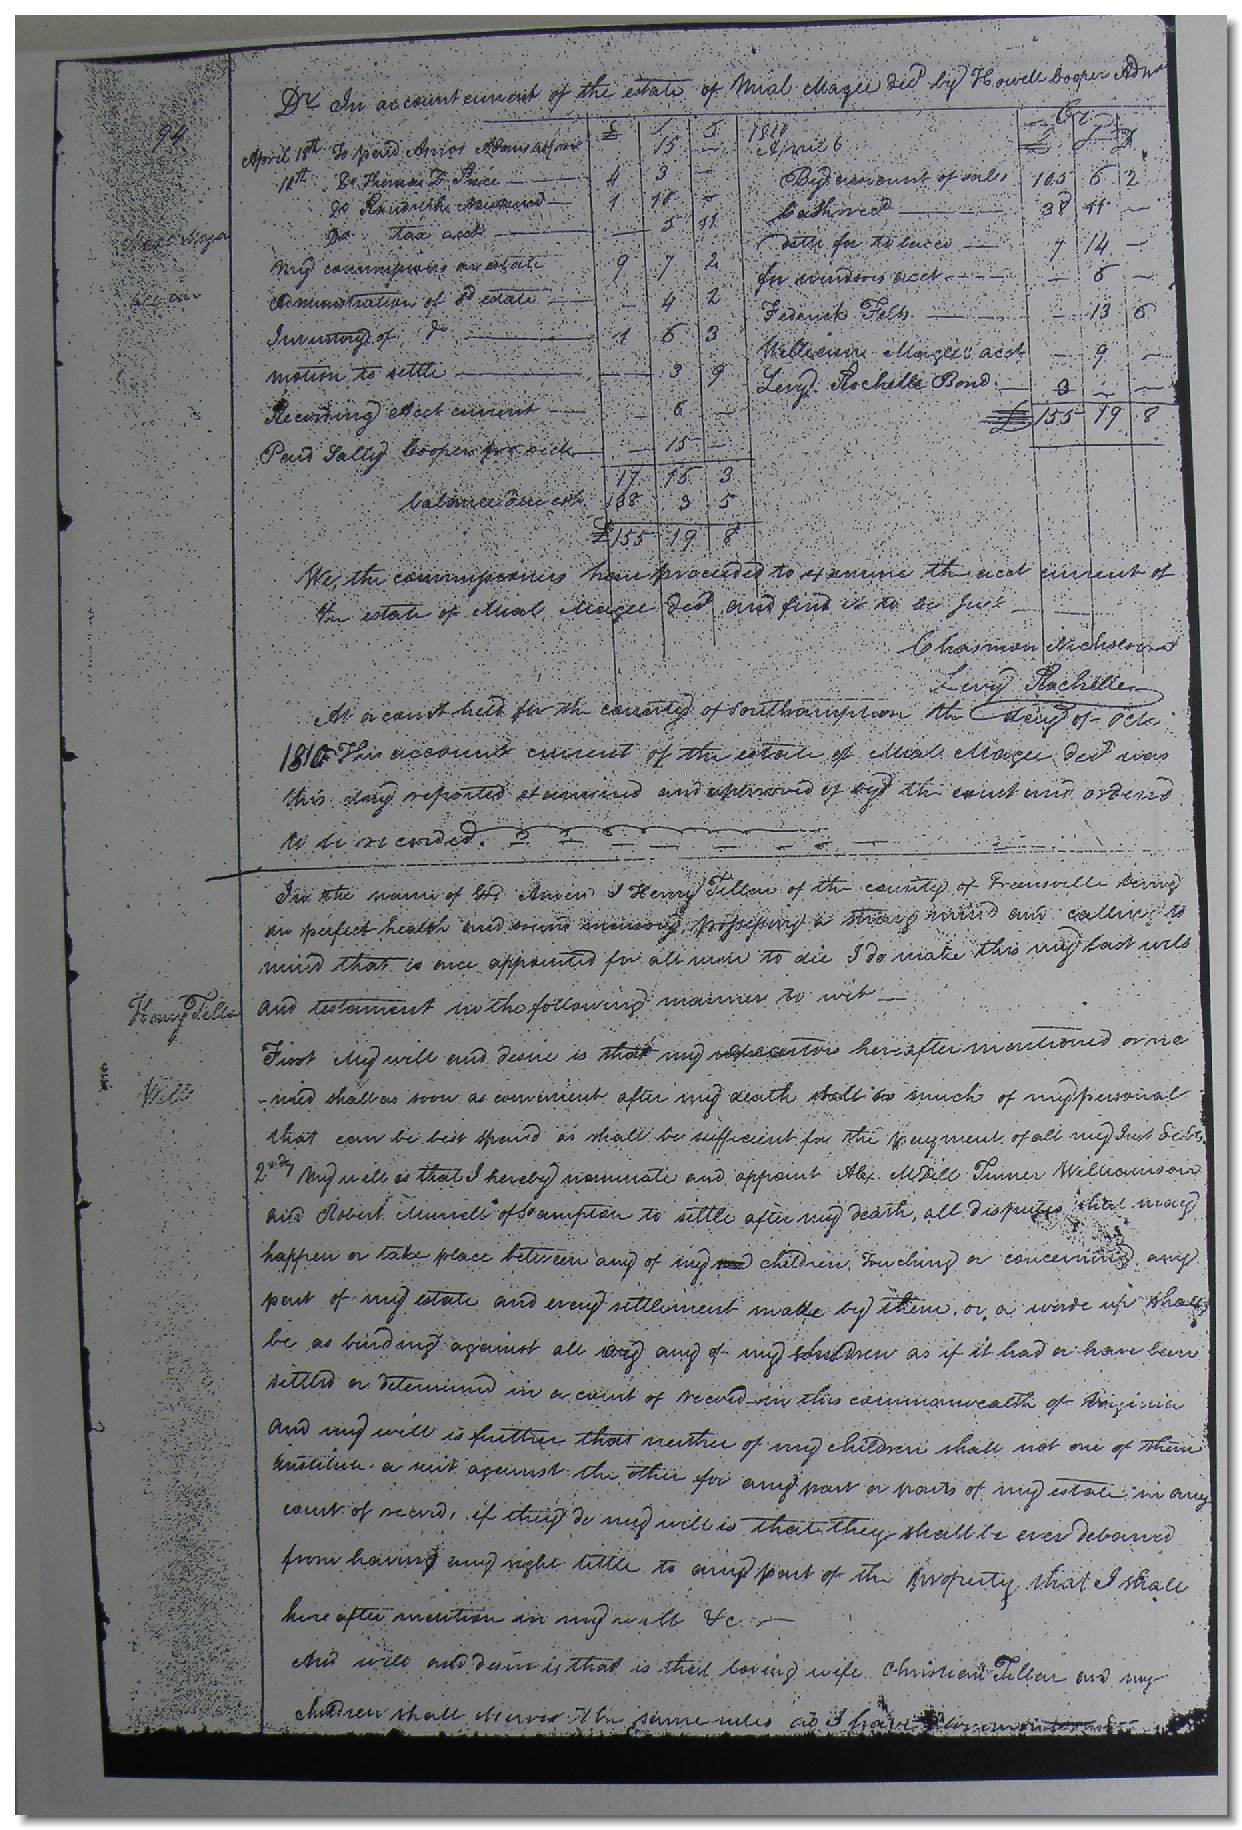 94
Dr. In account current of the estate of Mial Magee decd by Howell Cooper Adm
£ S D 1810 Cr £ S D
April 18th To paid Amos Adams acct 15 — April 6
18th Do Thomas D Price — 4 3 — By amount of sales 105 6 2
Do — 1 10 — Cash recd — 38 11 —
Do tax acct — 5 11 ditto for tobacco — 7 14 —
My commissions on estate 9 7 2 for acct — — 6 —
Administration of sd estate — 4 2 Federick — — 13 6
Inventory of do — 1 6 3 William Magee acct — 9 —
motion to settle — 3 9 Levy Rochelle Bond — 3 — —
Recording acct current — 6 — £ 155 19 8
Paid Sally Cooper for — 15 —
17 15 3
balance due est. 138 3 5
£155 19 8
We, the commissioners have proceeded to examine the acct current of
the estate of Mial Magee decd and find it to be Just
Nicholson
Levy Rochelle
At a court held for the county of Southampton the day of Oct
1810 This account current of the estate of Mial Magee decd was
this day reported examined and approved of by the court and ordered
to be recorded.
In the name of God Amen I Henry Tillar of the county of Greensville being
in perfect health and sound memory, possessing a strong mind and calling to
mind that is once appointed for all men to die I do make this my last will
Henry Tillar
and testament in the following manner to wit —
First My will and desire is that my executors hereafter mentioned or na
-med shall as soon as convenient after my death so much of my personal
Will
that can be best spared as shall be sufficient for the payment of all my Just debts,
2ndly My will is that I hereby nominate and appoint Alex. Turner Williamson
and Robert Murrell of S'ampton to settle after my death, all disputes that may
happen or take place between any of my children, Touching or concerning any
part of my estate and every settlement made by them, or, a shall
be as binding against all any of my children as if it had or have been
settled or determined in a court of record in this commonwealth of Virginia
and my will is further that neither of my children shall not one of them
institute a suit against the other for any part or parts of my estate in any
court of record, if they do my will is that they shall be ever debarred
from having any right tittle to any part of the property that I shall
here after mention in my will &c —
And will and desire is that is that loving wife Christian Tillar and my
children shall the same rules as I have